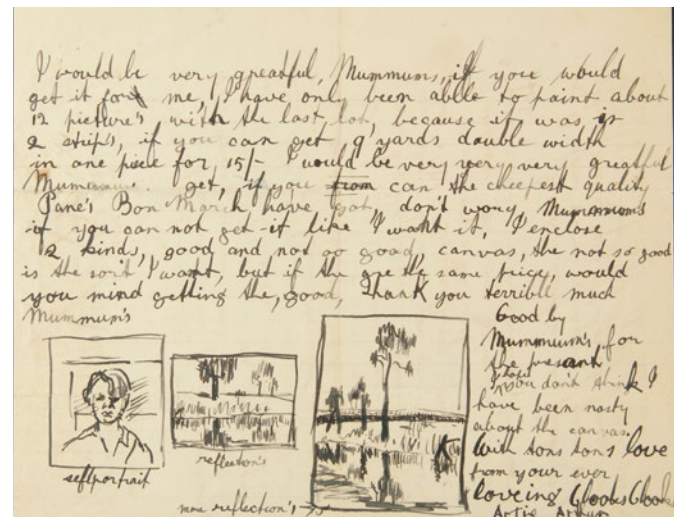 I would be very greatful, Mummums, if you would
get it for me, I have only been ablle to paint about
12 picture's with the last lot, because it was in
2 strip's, if you can get 9 yards double width
in one piece for, 15/- I would be very very very greatful
Mummums. get, if you from can the cheepest quality
Pane's Bon March have got, don't wory Mummum's
if you can not get it like I want it, I enclose
2 kinds, good and not so good, canvas, the not so good
is the sort I want, but if the are the same price, would
you mind getting the, good, thank you terrible much
Mummum's
Good by
Mummum's, for
the present
hope
you don't think I
have been nasty
about the canvas.
With tons tons love
from your ever
loveing Gloobs Gloobs
Artie Arthur
selfportrait
reflection's
more reflection's